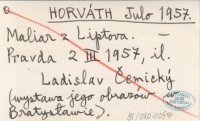 HORVÁTH Julo 1957.
Maliar z Liptova. —
Pravda 2 III 1957, il.
Ladislav Čemický
(wystawa jego obrazów
Bratysławie).